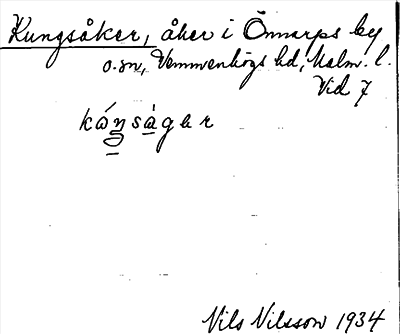 Kungsåker, åker i Önnarps by
o. sn, Vemmenhögs hd, Malm. l.
Vid 7
kóŋsàgɐr
Nils Nilsson 1934